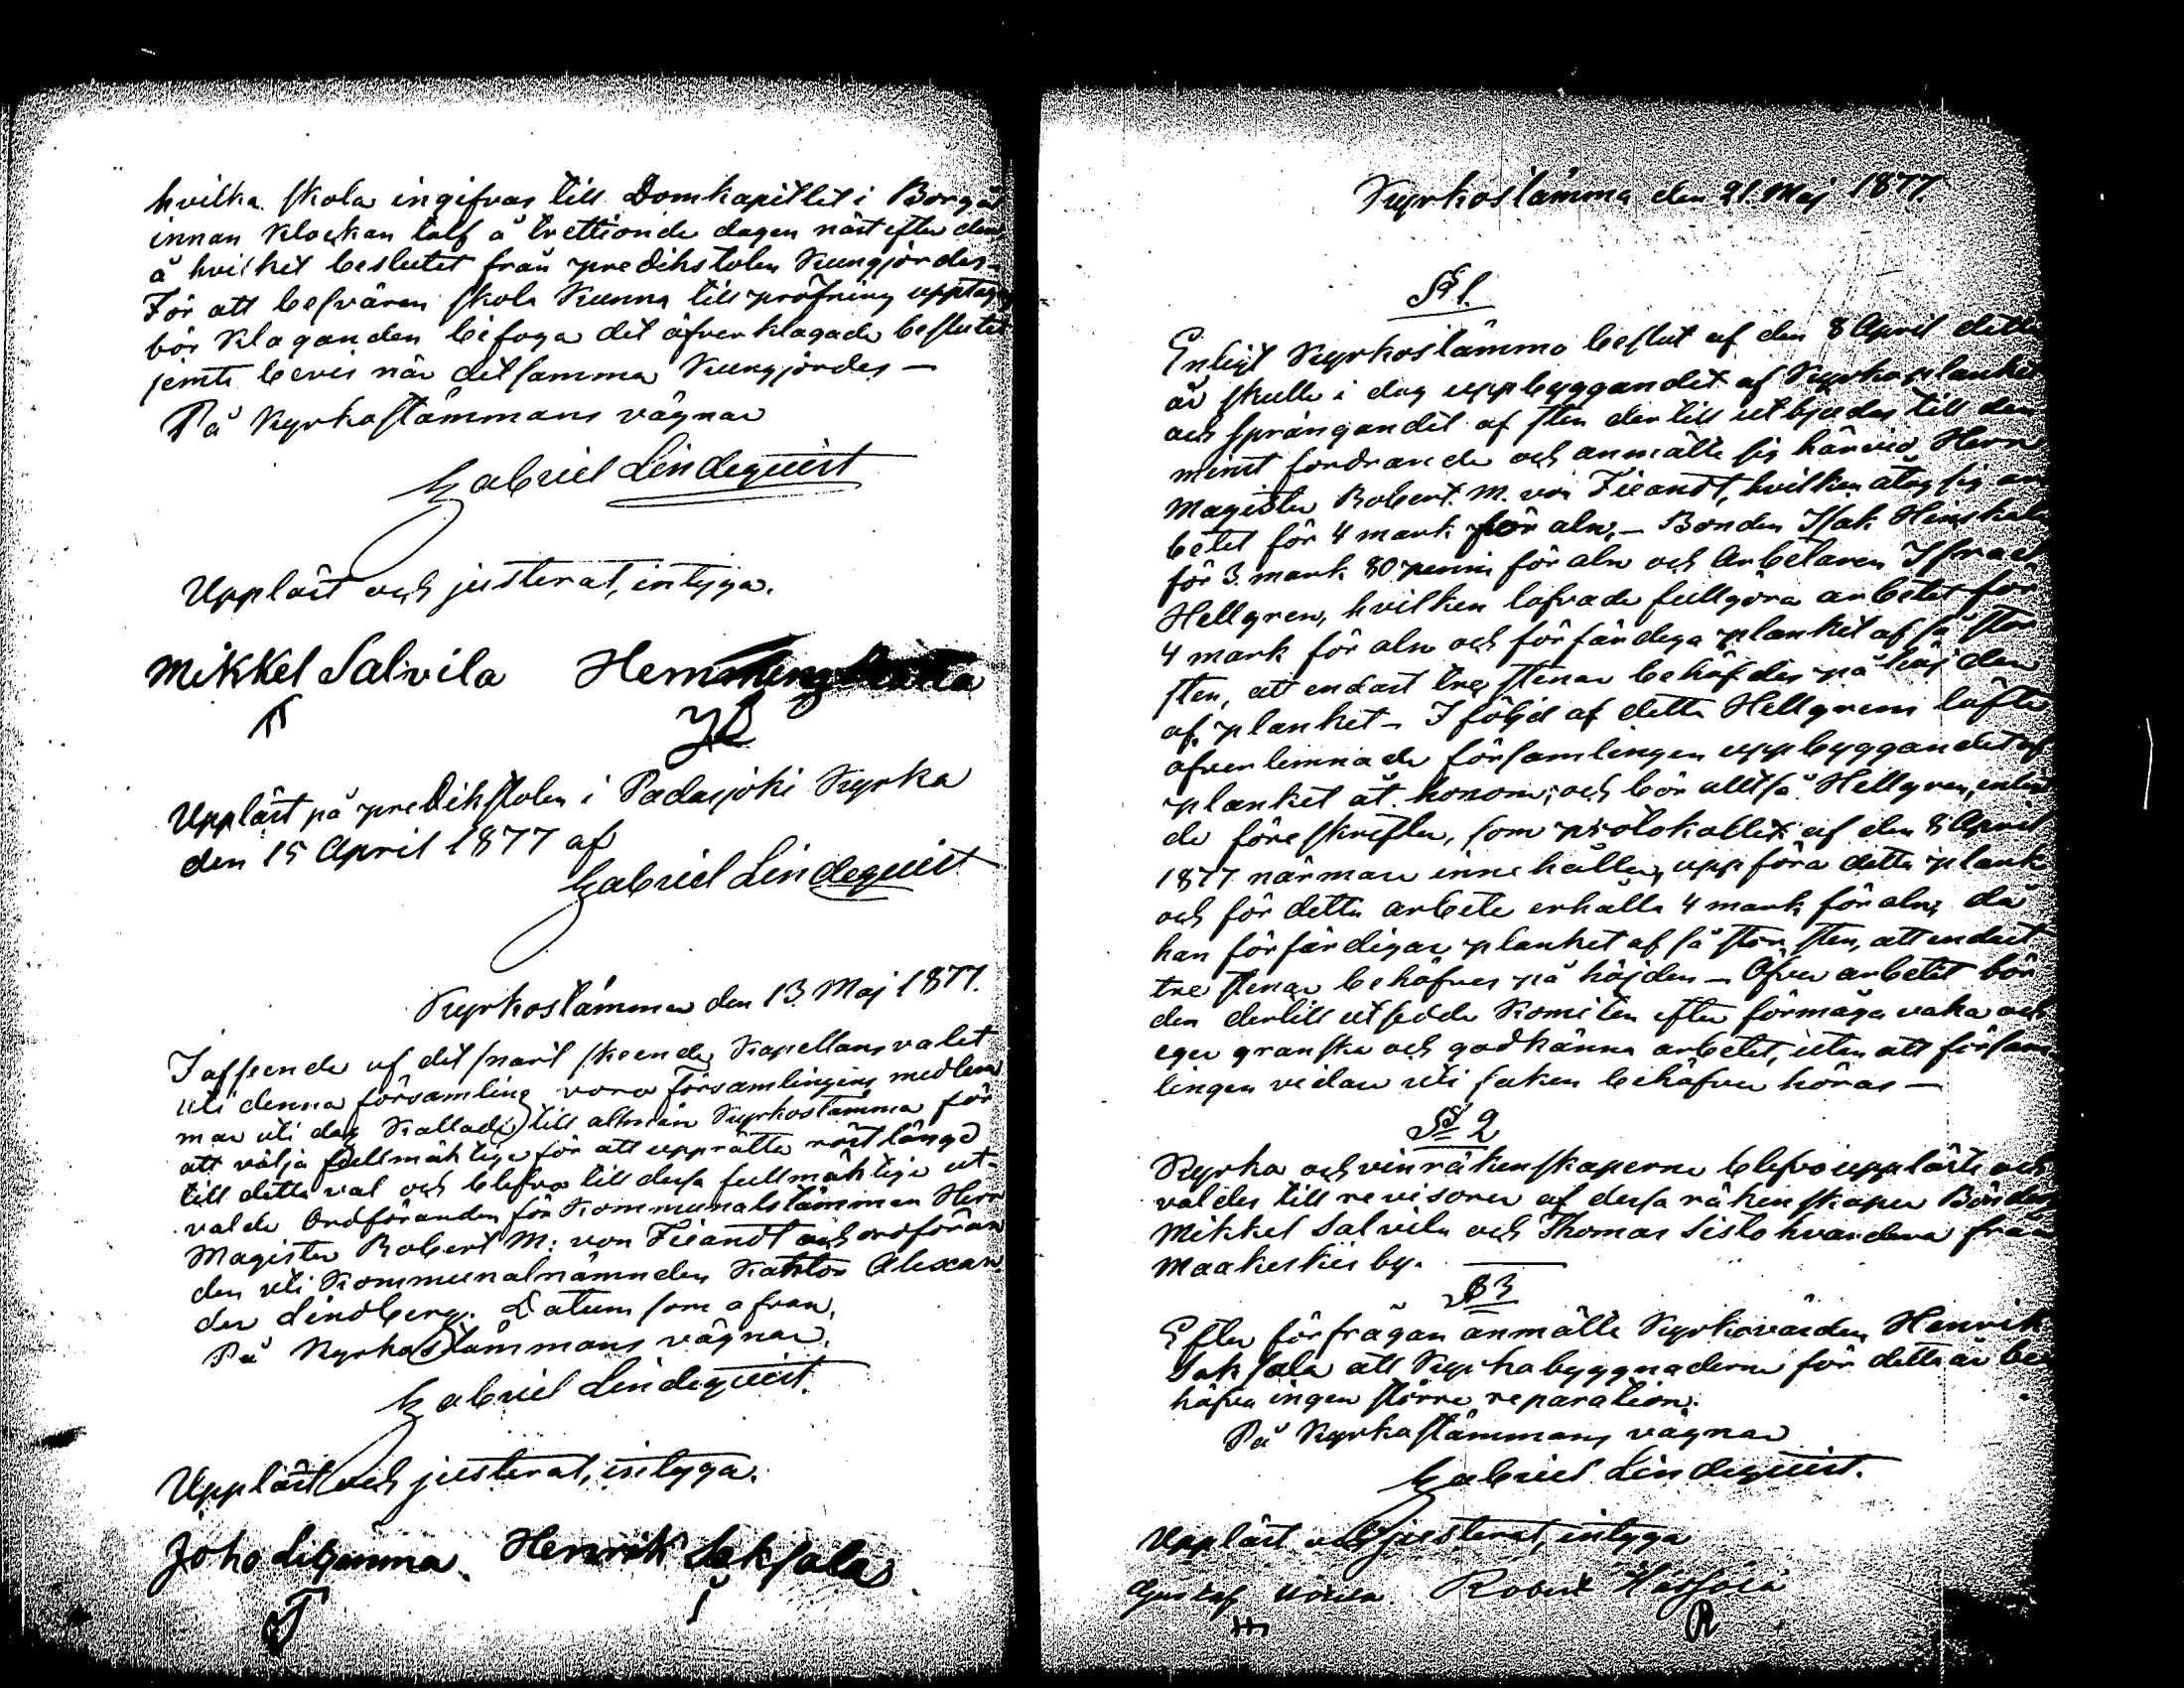 hvilka skola ingifvas till Domkapitlet i Borgå
innan klockan tolf å trettionde dagen näst efter den
å hvilket beslutet från predikstolen kungjordes.
För att besvären skola kunna till pröfning upptagas
bör klaganden bifoga det öfverklagade beslutet
jemte bevis när detsamma kungjordes —
På Kyrkostämmans vägnar
Gabriel Lindequist
Uppläst och justerat, intyga.
Mikkel Salvila
Uppläst på predikstolen i Padasjoki Kyrka
den 15 April 1877 af
Gabriel Lindequist
Kyrkostämma den 13 Maj 1877.
I afseende af det snart skeende Kapellansvalet
uti denna församling voro församlingens medlem
mar uti dag kallade till allmän Kyrkostämma för
att välja fullmäktige för att upprätta röstlängd
till detta val och blefvo till dessa fullmäktige ut-
valde Ordföranden för Kommunalstämman Herr
Magister Robert M. von Fieandt och ordföran
den uti Kommunalnämnden Kantor Alexan
der Lindberg. Datum som ofvan.
På Kyrkostämmans vägnar.
Gabriel Lindequist.
Uppläst och justerat, intyga.
Joho Henrik Seksala
Kyrkostämma den 21 Maj 1877.
§ 1.
Enligt Kyrkostämmo beslut af den 8 April detta
år skulle i dag uppbyggandet af Kyrkoplanket
och sprängandet af sten dertill utbjudas till den
minst fordrande och anmälte sig härvid Herr
Magister Robert M. von Fieandt, hvilken åtog sig ar
betet för 4 mark för aln, — Bonden Isak
för 3 mark 80 penni för aln och Arbetaren Israel
Hellgren, hvilken lofvade fullgöra arbetet för
4 mark för aln och förfärdiga planket af så stor
sten, att endast tre stenar behöfdes på höjden
af planket — I följd af detta Hellgrens löfte
öfverlemnade församlingen uppbyggandet af
planket åt honom; och bör alltså Hellgren, enligt
de föreskrifter, som protokollet af den 8 April
1877 närmare innehåller, uppföra detta plank
och för detta arbete erhålla 4 mark för aln, då
han förfärdigar planket af så stor sten, att endast
tre stenar behöfves på höjden — Öfver arbetet bör
den dertill utsedde Komiten efter förmåga vaka och
eger granska och godkänna arbetet, utan att försam
lingen vidare uti saken behöfver höras —
§ 2
Kyrko och vinräkenskaperne blefvo upplästa och
valdes till revisorer af dessa räkenskaper Bönderne
Mikkel Salvila och Thomas Sisto hvardera från
Maakeskis by.
§ 3
Efter förfrågan anmälte Kyrkovärden Henrik
Seksala att Kyrkobyggnaderne för detta år be
höfva ingen större reparation.
På Kyrkostämmans vägnar
Gabriel Lindequist.
Uppläst och justerat, intyga
Gustaf Robert
R